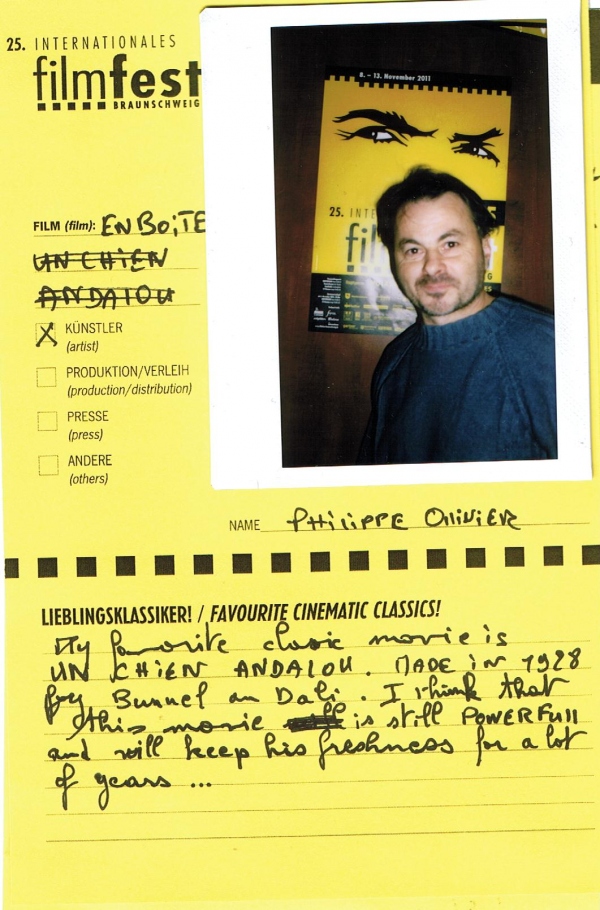 25. INTERNATIONALES
filmfest
BRAUNSCHWEIG
8. – 13. November 2011
25. INTE
fil
FILM (film): EN BOiTE
UN CHiEN
ANDALOU
X KÜNSTLER
(artist)
PRODUKTION/VERLEIH
(production/distribution)
PRESSE
(press)
ANDERE
(others)
NAME PHiliPPE OlliViER
LIEBLINGSKLASSIKER! / FAVOURITE CINEMATIC CLASSICS!
My favorite clasic movie is
UN CHiEN ANDALOU. MADE iN 1928
by Bunuel an Dali. I think that
this movie is still POWERFUll
and will keep his freshness for a lot
of years ...